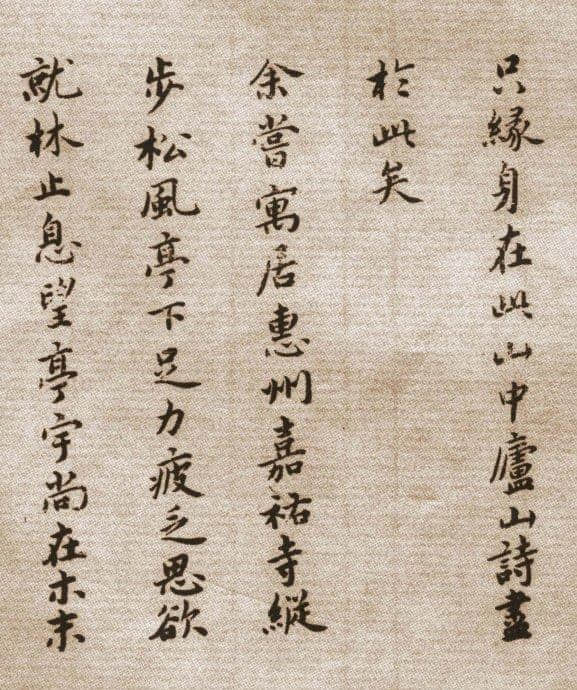 只緣身在此山中廬山詩盡
於此矣
余嘗寓居惠州嘉祐寺縱
步松風亭下足力疲乏思欲
就林止息望亭宇尚在木末